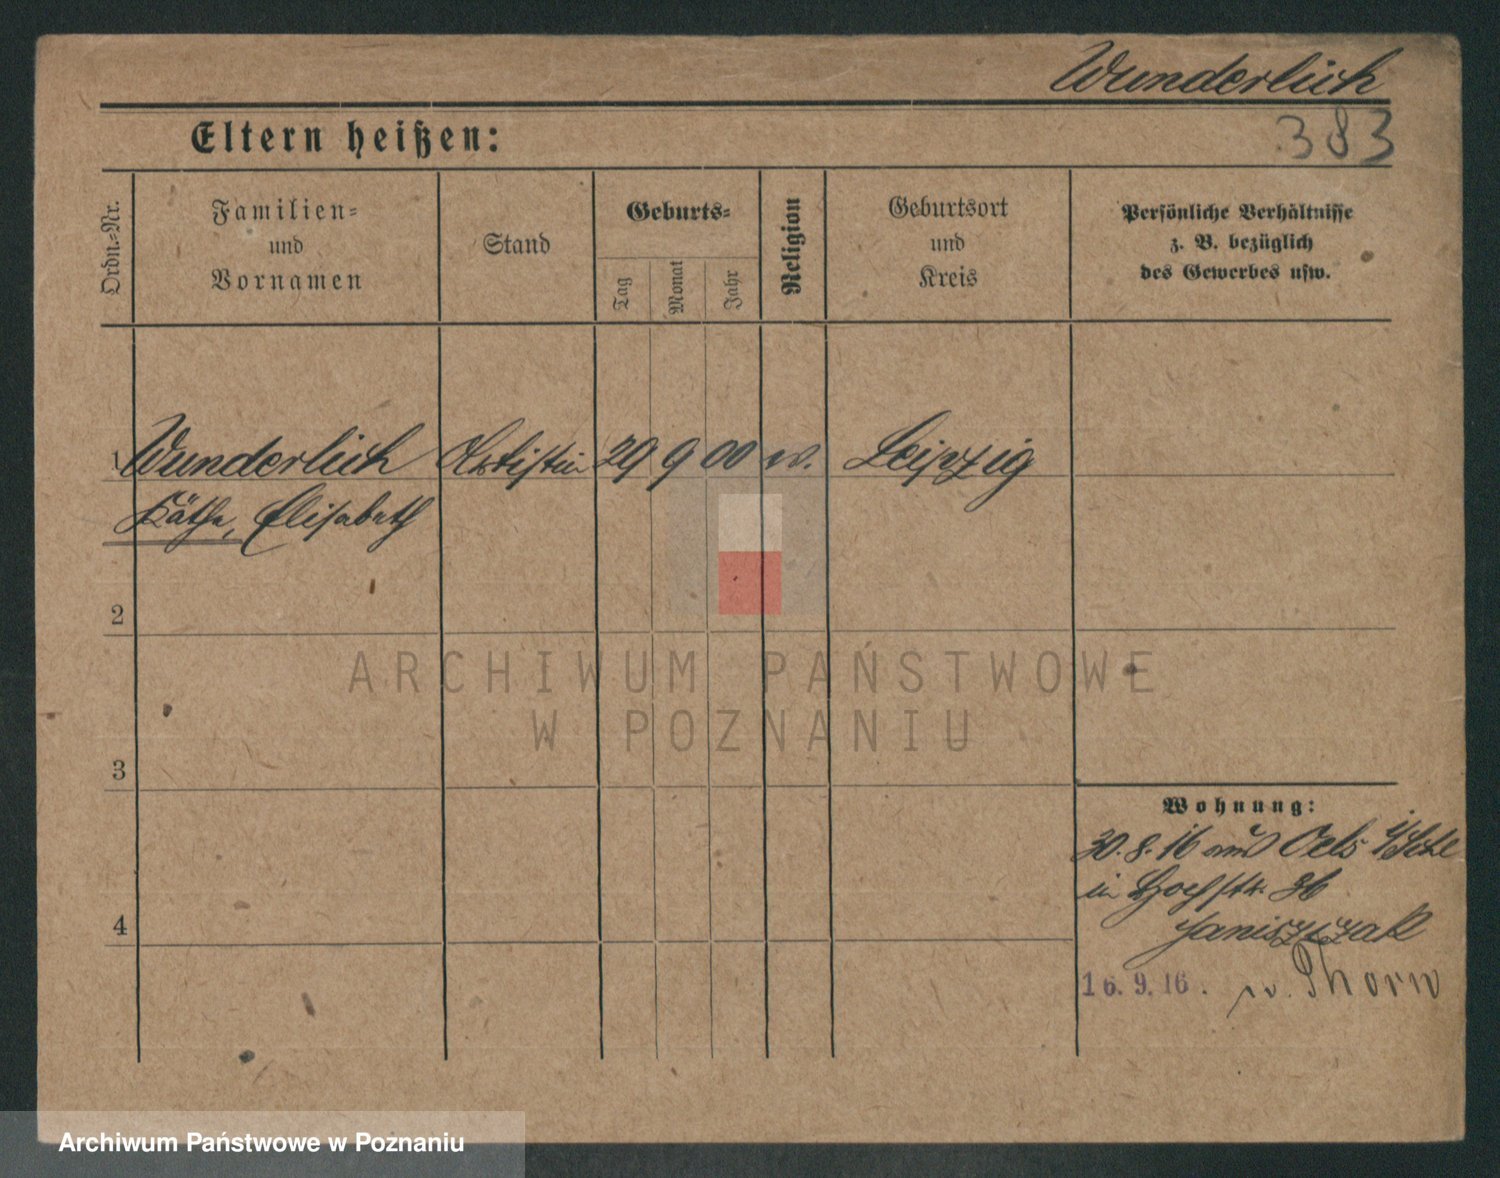 Wunderlich
Eltern heißen:
383
Ordn.-Nr.
Familien-
und
Vornamen
Stand
Geburts-
Tag
Monat
Jahr
Religion
Geburtsort
und
Kreis
Persönliche Verhältnisse
z. B. bezüglich
des Gewerbes usw.
1 Wunderlich Artistin 29 9 00 Leipzig
Käthe, Elisabeth
2
3
4
Wohnung:
30.8.16 aus Oels
in Hochstr. 36
Janiszczak
16.9.16. n. Thorn
ARCHIWUM PAŃSTWOWE
W POZNANIU
Archiwum Państwowe w Poznaniu